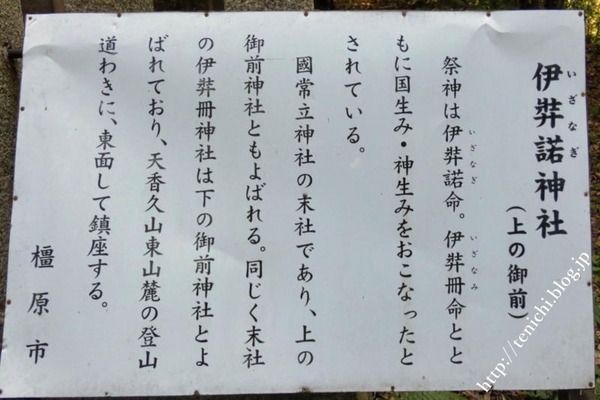 いざなぎ
伊弉諾神社
(上の御前)
いざなぎ いざなみ
祭神は伊弉諾命。伊弉冊命とと
もに国生み・神生みをおこなったと
されている。
國常立神社の末社であり、上の
御前神社ともよばれる。同じく末社
の伊弉冊神社は下の御前神社とよ
ばれており、天香久山東山麓の登山
道わきに、東面して鎮座する。
橿原市
http://tenichi.blog.jp